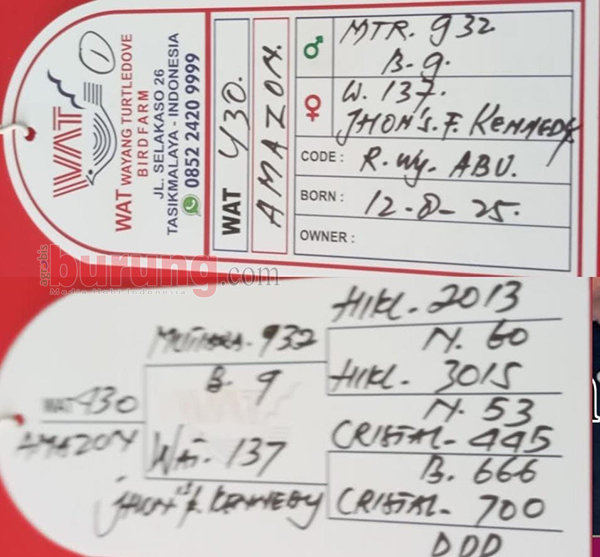 1
WAT
WAT WAYANG TURTLEDOVE
BIRDFARM
JL. SELAKASO 26
TASIKMALAYA - INDONESIA
0852 2420 9999
WAT 430.
AMAZON.
♂ MTR. 932
B. 9.
♀ W. 137.
JHON'S. F. KENNEDY
CODE : R. wy. ABU.
BORN : 12-8-25.
OWNER :
agrobis
burung.com
WAT 430
AMAZON
MUTIARA. 932
B. 9
WAT. 137
JHON'S F. KENNEDY
HIKL. 2013
N. 60
HIKL. 3015
N. 53
CRISTAL - 445
B. 666
CRISTAL - 700
DDD